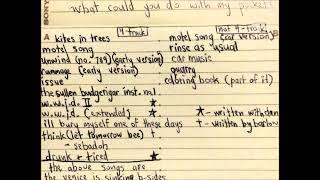 what could you do with my pockets
SONY
4 track
not 4-track
A kites in trees
motel song
unwind (no. 789) (early version)
rummage (early version)
issue
the sullen budgerigar inst. no. 1
w.w.j.d. II
w.w.j.d. (extended)
ill bury myself one of these days
think (let tomorrow bee) +
- sebadoh
drunk + tired
the above songs are
the venice is sinking b-sides
motel song (car version)
rinse as usual
car music
quality
coloring book (part of it)
★ - written with dan
+ - written by barlow